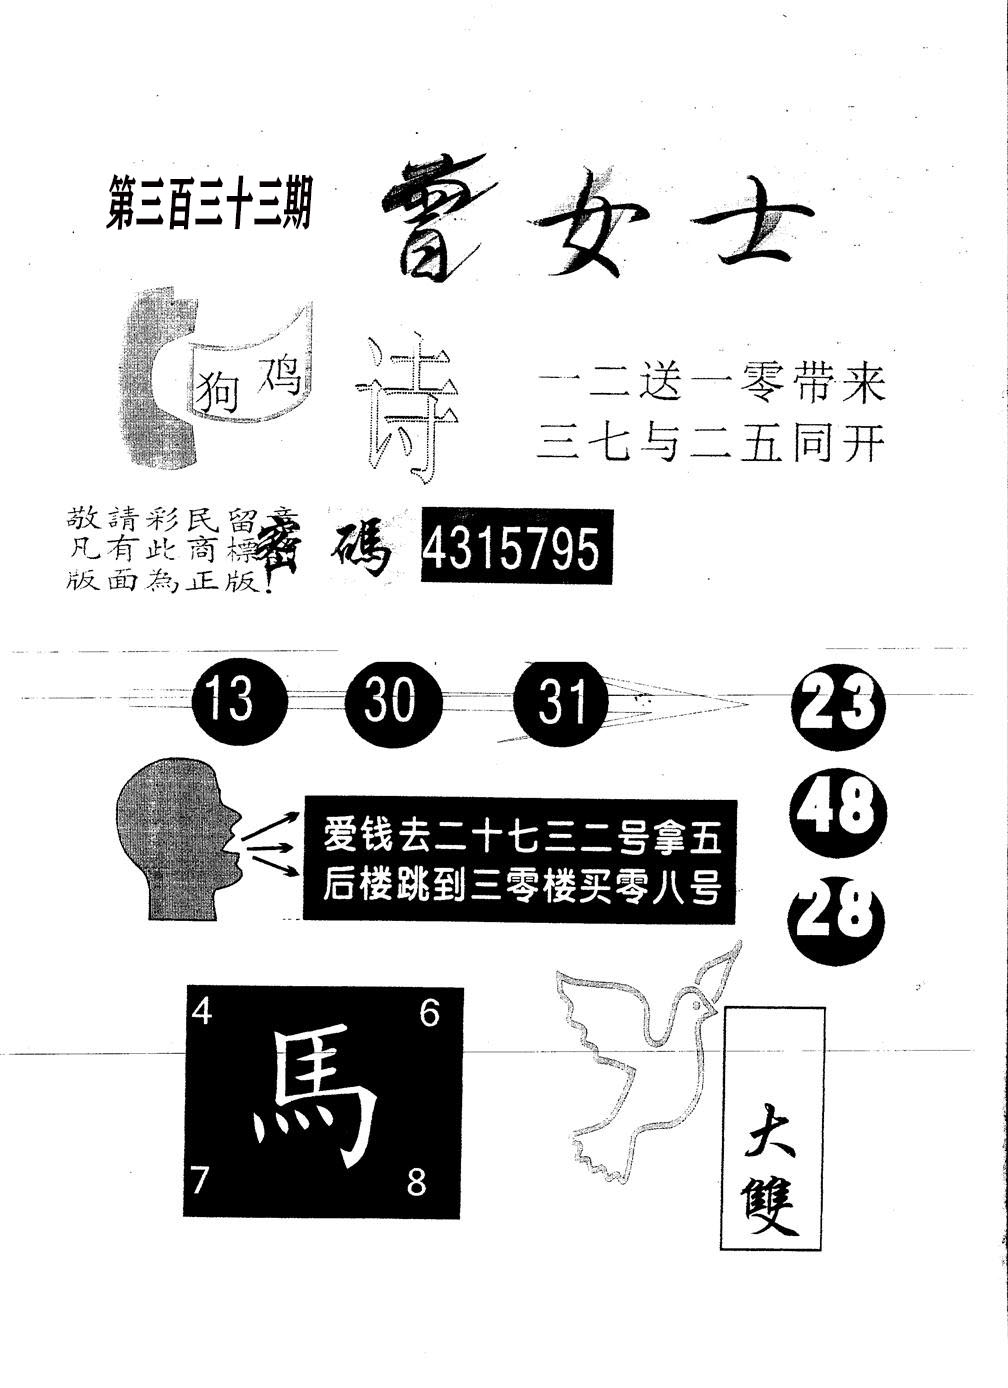 第三百三十三期
曾女士
狗 鸡
诗
一二送一零带来
三七与二五同开
敬請彩民留意
凡有此商標
版面為正版!
密碼 4315795
13 30 31
23
48
28
爱钱去二十七三二号拿五
后楼跳到三零楼买零八号
4 6
馬
7 8
大
雙